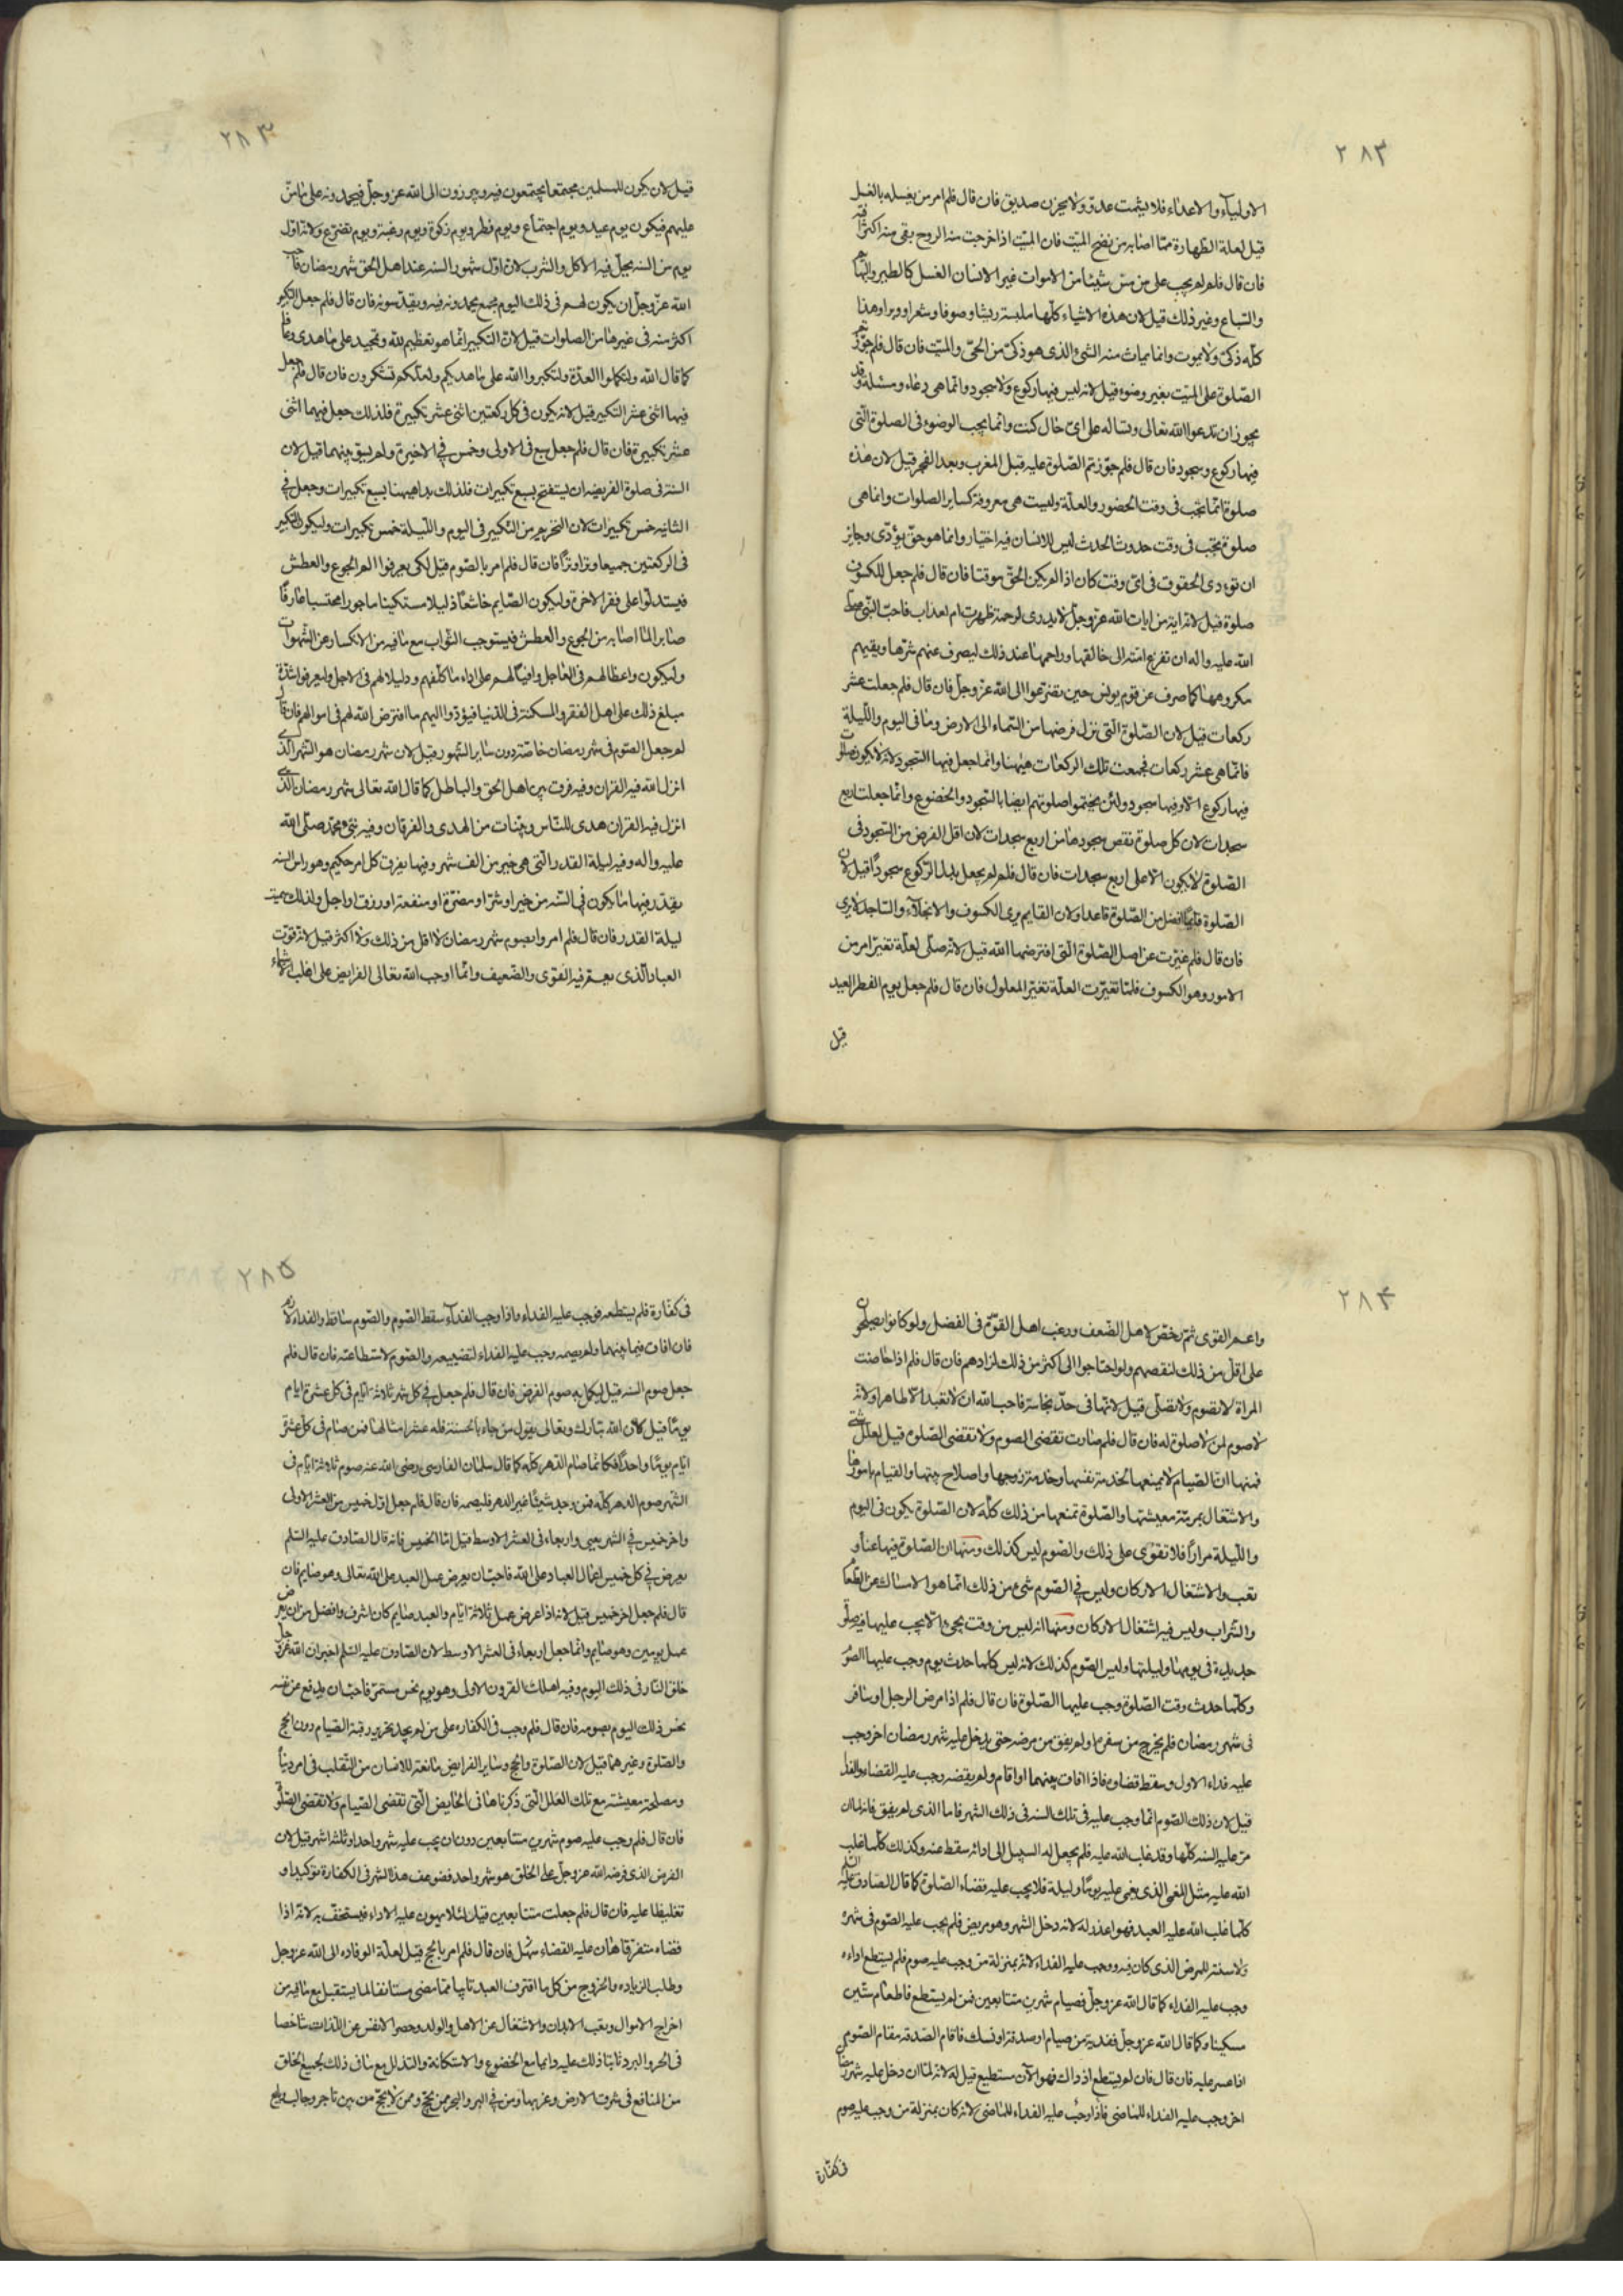 ٢٨٢
الاولياء والاعداء فلا يشمت عدوّ ولا يحزن صديق فان قال فلم امر من يغسله بالغسل
قيل لعلة الطهارة ممّا اصابه من نضح الميّت فان الميّت اذا خرجت منه الروح بقى منه اكثر افته
فان قال فلم لم يجب على من مسّ شيئا من الاموات غير الانسان الغسل كالطير والبهائم
والسّباع وغير ذلك قيل لان هذه الاشياء كلّها ملبسة ريشا وصوفا وشعرا ووبرا وهذا
كلّه ذكىّ ولا يموت وانما يماث منه الشئ الذى هو ذكىّ من الحىّ والميّت فان قال فلم جوّزتم
الصّلوة على الميّت بغير وضوء قيل لانه ليس فيها ركوع ولا سجود وانّما هى دعاء ومسئلة وقد
يجوز ان تدعوا الله تعالى وتساله على اىّ حال كنت وانّما يجب الوضوء فى الصلوة الّتى
فيها ركوع وسجود فان قال فلم جوّزتم الصّلوة عليه قبل المغرب وبعد الفجر قيل لان هذه
صلوة انّما تجب فى وقت الحضور والعلّة وليست هى موقتة كساير الصلوات وانما هى
صلوة تجب فى وقت حدوث الحدث ليس للانسان فيه اختيار وانما هو حقّ يؤدّى وجايز
ان تودى الحقوق فى اىّ وقت كان اذا لم يكن الحقّ موقتا فان قال فلم جعل للكسوف
صلوة قيل لانه اية من ايات الله عزّ وجلّ لا يدرى لرحمة ظهرت ام لعذاب فاحبّ النّبى صلّى
الله عليه واله ان تفزع امّته الى خالقها وراحمها عند ذلك ليصرف عنهم شرّها ويقيهم
مكروهها كما صرف عن قوم يونس حين تضرّعوا الى الله عزّ وجلّ فان قال فلم جعلت عشر
ركعات قيل لان الصّلوة الّتى نزل فرضها من السّماء الى الارض وما فى اليوم والّليلة
فانّما هى عشر ركعات فجمعت تلك الركعات هيهنا وانّما جعل فيها السّجود لانه لا يكون صلوة
فيها ركوع الّا وفيها سجود ولئن يختموا صلوتهم ايضا بالسّجود والخضوع وانّما جعلت اربع
سجدات لان كل صلوة نقص سجودها من اربع سجدات لان اقل الفرض من السّجود فى
الصّلوة لا يكون الّا على اربع سجدات فان قال فلم لم يجعل بدل الرّكوع سجودا قيل لان
الصّلوة قايما افضل من الصّلوة قاعدا ولان القايم يرى الكسوف والانجلاء والسّاجد لا يرى
فان قال فلم غيّرت عن اصل الصّلوة الّتى افترضها الله قيل لانه صلّى لعلّة تغيّر امر من
الامور وهو الكسوف فلمّا تغيّرت العلّة تغيّر المعلول فان قال فلم جعل يوم الفطر العيد
قيل
٢٨٣
قيل لان يكون للمسلمين مجتمعا يجتمعون فيه ويبرزون الى الله عزّ وجلّ فيحمدونه على ما منّ
عليهم فيكون يوم عيد ويوم اجتماع ويوم فطر ويوم زكوة ويوم رغبة ويوم تضرّع ولانه اوّل
يوم من السنه يحلّ فيه الاكل والشرب لان اوّل شهور السنه عند اهل الحقّ شهر رمضان فاحب
الله عزّ وجلّ ان يكون لهم فى ذلك اليوم مجمع يحمدونه فيه ويقدّسونه فان قال فلم جعل التكبير
اكثر منه فى غيرها من الصلوات قيل لانّ التكبير انّما هو تعظيم لله وتمجيد على ما هدى وعافا
كما قال الله ولتكملوا العدّة ولتكبروا الله على ما هديكم ولعلّكم تشكرون فان قال فلم جعل
فيها اثنى عشر التكبير قيل لانه يكون فى كل ركعتين اثنى عشر تكبيرة فلذلك جعل فيهما اثنى
عشر تكبيرة فان قال فلم جعل سبع فى الاولى وخمس فى الاخيرة ولم يسوّ بينهما قيل لان
السنّة فى صلوة الفريضه ان يستفتح بسبع تكبيرات فلذلك بدا هيهنا بسبع تكبيرات وجعل فى
الثانيه خمس تكبيرات لان التحريم من التّكبير فى اليوم والّليلة خمس تكبيرات وليكون التكبير
فى الركعتين جميعا وترا وترا فان قال فلم امر بالصّوم قيل لكى يعرفوا الم الجوع والعطش
فيستدلّوا على فقر الاخرة وليكون الصّايم خاشعا ذليلا مستكينا ماجورا محتسبا عارفا
صابرا لما اصابه من الجوع والعطش فيستوجب الثّواب مع ما فيه من الانكسار عن الشهوات
وليكون واعظا لهم فى العاجل ورايضا لهم على اداء ما كلّفهم ودليلا لهم فى الاجل وليعرفوا شدّة
مبلغ ذلك على اهل الفقر والمسكنة فى الدّنيا فيؤدّوا اليهم ما افترض الله لهم فى اموالهم فان قال
لم جعل الصّوم فى شهر رمضان خاصّة دون ساير الشهور قيل لان شهر رمضان هو الشهر الّذى
انزل الله فيه القران وفيه فرق بين اهل الحق والباطل كما قال الله تعالى شهر رمضان الذى
انزل فيه القران هدى للنّاس وبيّنات من الهدى والفرقان وفيه نبّئ محمّد صلّى الله
عليه واله وفيه ليلة القدر الّتى هى خير من الف شهر وفيها يفرق كل امر حكيم وهو راس السنه
يقدّر فيها ما يكون فى السّنه من خير او شرّ او مضرّة او منفعة او رزق او اجل ولذلك سميت
ليلة القدر فان قال فلم امروا بصوم شهر رمضان لا اقل من ذلك ولا اكثر قيل لانه قوّت
العباد الّذى يعمّ فيه القوى والضّعيف وانّما اوجب الله تعالى الفرايض على اغلب الاشياء
٢٨٤
واعمّ القوى ثمّ رخّص لاهل الضّعف ورغب اهل القوّة فى الفضل ولو كانوا يصلحون
على اقلّ من ذلك لنقصهم ولو احتاجوا الى اكثر من ذلك لزادهم فان قال فلم اذا حاضت
المراة لا تصوم ولا تصلّى قيل لانّها فى حدّ نجاسة فاحبّ الله ان لا تعبد الّا طاهرا ولانّه
لا صوم لمن لا صلوة له فان قال فلم صارت تقضى الصوم ولا تقضى الصّلوة قيل لعلل شتى
فمنها انّ الصّيام لا يمنعها الخدمة نفسها وخدمة زوجها واصلاح بيتها والقيام بامورها
والاشتغال بمرمّة معيشتها والصّلوة تمنعها من ذلك كلّه لان الصّلوة يكون فى اليوم
والّليلة مرارا فلا تقوى على ذلك والصّوم ليس كذلك ومنها ان الصّلوة فيها عناء و
تعب والاشتغال الاركان وليس فى الصّوم شئ من ذلك انّما هو الامساك عن الطعام
والشّراب وليس فيه اشتغال الاركان ومنها انه ليس من وقت يجئ الّا يجب عليها فيه صلوة
جديدة فى يومها وليلتها وليس الصّوم كذلك لانه ليس كلما حدث يوم وجب عليها الصّوم
وكلّما حدث وقت الصّلوة وجب عليها الصّلوة فان قال فلم اذا مرض الرجل او سافر
فى شهر رمضان فلم يخرج من سفره او لم يفق من مرضه حتى يدخل عليه شهر رمضان اخر وجب
عليه فداء الاول وسقط قضاوه فاذا افاق بينهما او اقام ولم يقضه وجب عليه القضاء والفداء
قيل لان ذلك الصّوم انّما وجب عليه فى تلك السنه فى ذلك الشهر فاما الذى لم يفق فانه لما ان
مرّ عليه السنه كلّها وقد غلب الله عليه فلم يجعل له السبيل الى ادائه سقط عنه وكذلك كلّما غلب
الله عليه مثل المغمى الذى يغمى عليه يوما وليلة فلا يجب عليه قضاء الصّلوة كما قال الصّادق عليه السّلم
كلّما غلب الله عليه العبد فهو اعذر له لانه دخل الشهر وهو مريض فلم يجب عليه الصّوم فى شهره
ولا سنته للمرض الذى كان فيه ووجب عليه الفداء لانه بمنزلة من وجب عليه صوم فلم يستطع اداءه
وجب عليه الفداء كما قال الله عزّ وجلّ فصيام شهرين متتابعين فمن لم يستطع فاطعام ستّين
مسكينا وكما قال الله عزّ وجلّ ففدية من صيام او صدقة او نسك فاقام الصّدقة مقام الصّوم
اذا عسر عليه فان قال فان لم يستطع اذ ذاك فهو الآن مستطيع قيل له لانه لما ان دخل عليه شهر رمضان
اخر وجب عليه الفداء للماضى فاذا وجب عليه الفداء للماضى لانه كان بمنزلة من وجب عليه صوم
فى كفّارة
٢٨٥
فى كفّارة فلم يستطعه فوجب عليه الفداء واذا وجب الفداء سقط الصّوم والصّوم ساقط والفداء لازم
فان افاق فيما بينهما ولم يصمه وجب عليه الفداء لتضييعه والصّوم لاستطاعته فان قال فلم
جعل صوم السنه قيل ليكمل به صوم الفرض فان قال فلم جعل فى كل شهر ثلاثة ايّام فى كل عشرة ايام
يوما قيل لان الله تبارك وتعالى يقول من جاء بالحسنة فله عشر امثالها فمن صام فى كل عشرة
ايّام يوما واحدا فكانّما صام الدّهر كلّه كما قال سلمان الفارسى رضى الله عنه صوم ثلاثة ايّام فى
الشّهر صوم الدهر كلّه فمن وجد شيئا غير الدهر فليصمه فان قال فلم جعل اوّل خميس من العشر الاولى
واخر خميس فى الشهر يعنى واربعاء فى العشر الاوسط قيل امّا الخميس فانه قال الصّادق عليه السّلم
يعرض فى كل خميس اعمال العباد على الله فاحبّ ان يعرض عمل العبد على الله تعالى وهو صايم فان
قال فلم جعل اخر خميس قيل لانه اذا عرض عمل ثلاثة ايّام والعبد صايم كان اشرف وافضل من ان يعرض
عمل يومين وهو صايم وانّما جعل اربعاء فى العشر الاوسط لان الصّادق عليه السّلم اخبر ان الله عزّ وجلّ
خلق النّار فى ذلك اليوم وفيه اهلك القرون الاولى وهو يوم نحس مستمرّ فاحبّ ان يدفع عن نفسه
نحس ذلك اليوم بصومه فان قال فلم وجب فى الكفاره على من لم يجد تحرير رقبة الصّيام دون الحج
والصّلوة وغيرهما قيل لان الصّلوة والحج وساير الفرايض مانعة للانسان من التّقلب فى امر دنياه
ومصلحة معيشته مع تلك العلل الّتى ذكرناها فى الحايض الّتى تقضى الصّيام ولا تقضى الصّلوة
فان قال فلم وجب عليه صوم شهرين متتابعين دون ان يجب عليه شهر واحد او ثلثة اشهر قيل لان
الفرض الذى فرضه الله عزّ وجلّ على الخلق هو شهر واحد فضوعف هذا الشهر فى الكفارة توكيدا و
تغليظا عليه فان قال فلم جعلت متتابعين قيل لئلا يهون عليه الاداء فيستخفّ به لانّه اذا
قضاه متفرّقا هان عليه القضاء سهل فان قال فلم امر بالحج قيل لعلّة الوفاده الى الله عزّ وجل
وطلب الزياده والخروج من كل ما اقترف العبد تايبا ممّا مضى مستانفا لما يستقبل مع ما فيه من
اخراج الاموال وتعب الابدان والاشتغال عن الاهل والولد وحصر الانفس عن اللّذات شاخصا
فى الحر والبرد ثابتا ذلك عليه دايما مع الخضوع والاستكانة والتذلل مع ما فى ذلك لجميع الخلق
من المنافع فى شرق الارض وغربها ومن فى البر والبحر ممن يحجّ وممن لا يحجّ من بين تاجر وجالب وبايع